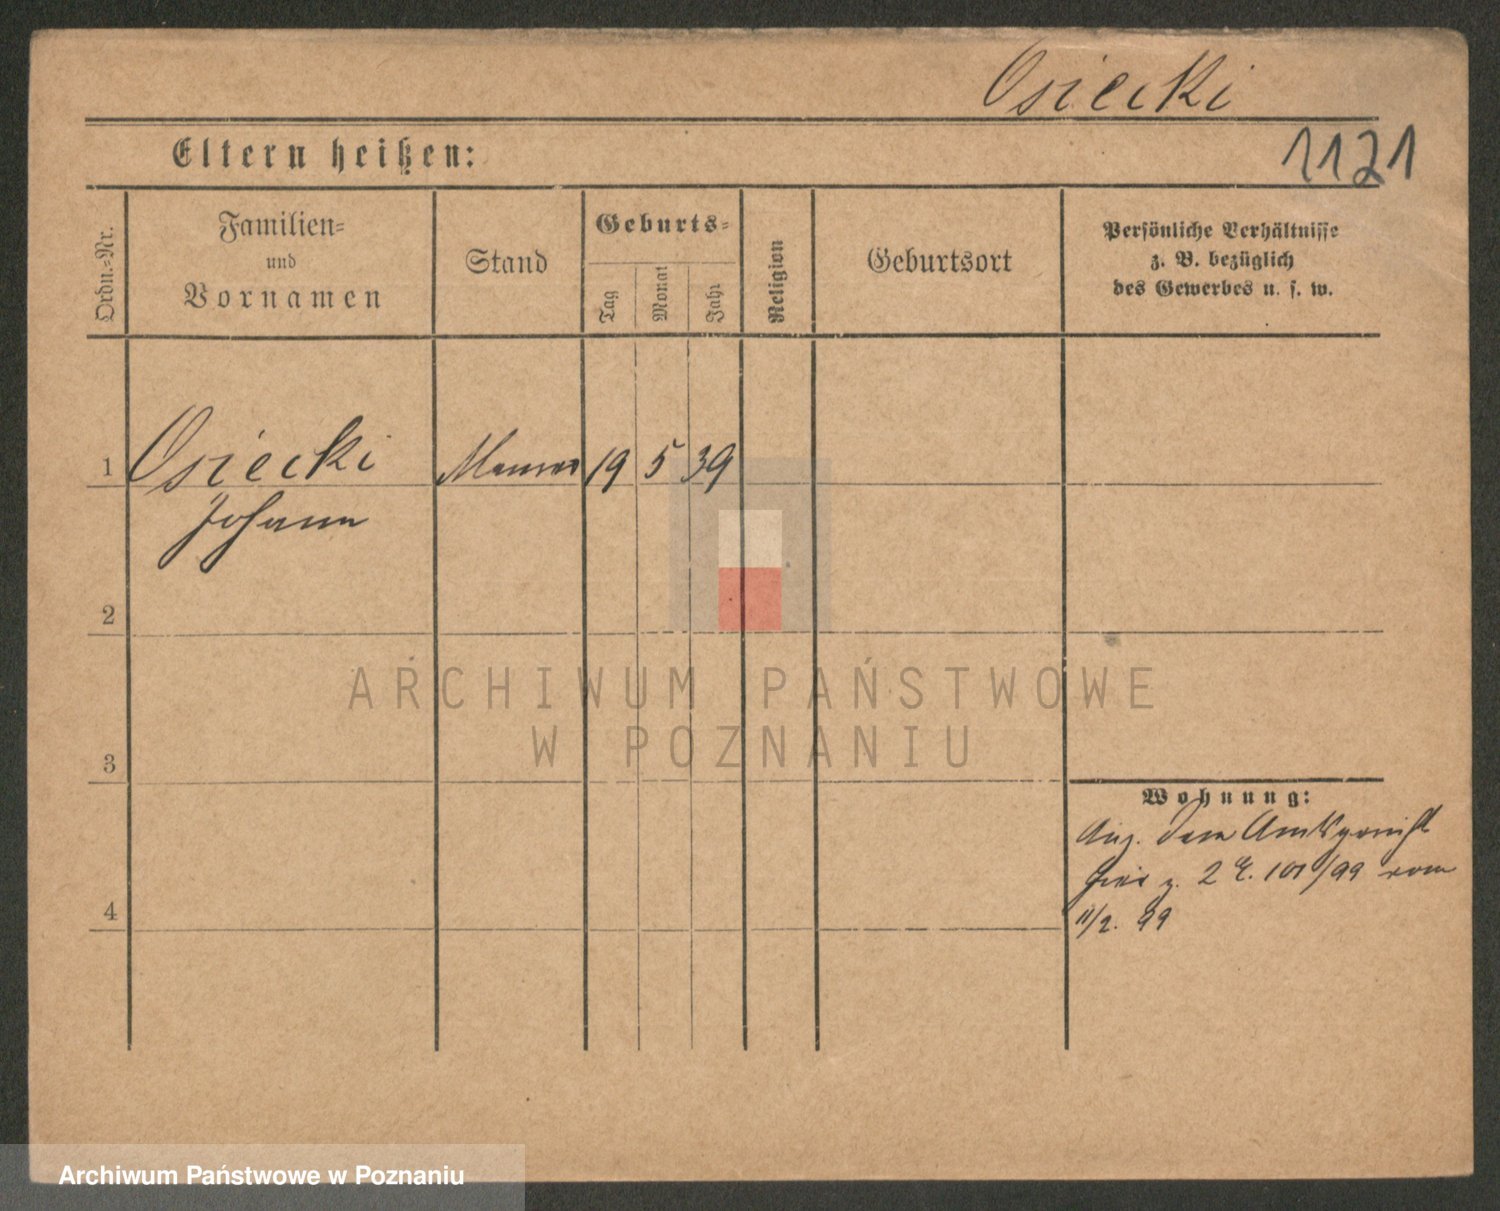 Osiecki
1121
Eltern heißen:
Ordn.-Nr.
Familien-
und
Vornamen
Stand
Geburts-
Tag
Monat
Jahr
Religion
Geburtsort
Persönliche Verhältnisse
z. B. bezüglich
des Gewerbes u. s. w.
1 Osiecki Maurer 19 5 39
Johann
2
3
4
Wohnung:
dem Amtsgericht
z. 2 101/99 vom
11/2. 99
ARCHIWUM PAŃSTWOWE
W POZNANIU
Archiwum Państwowe w Poznaniu